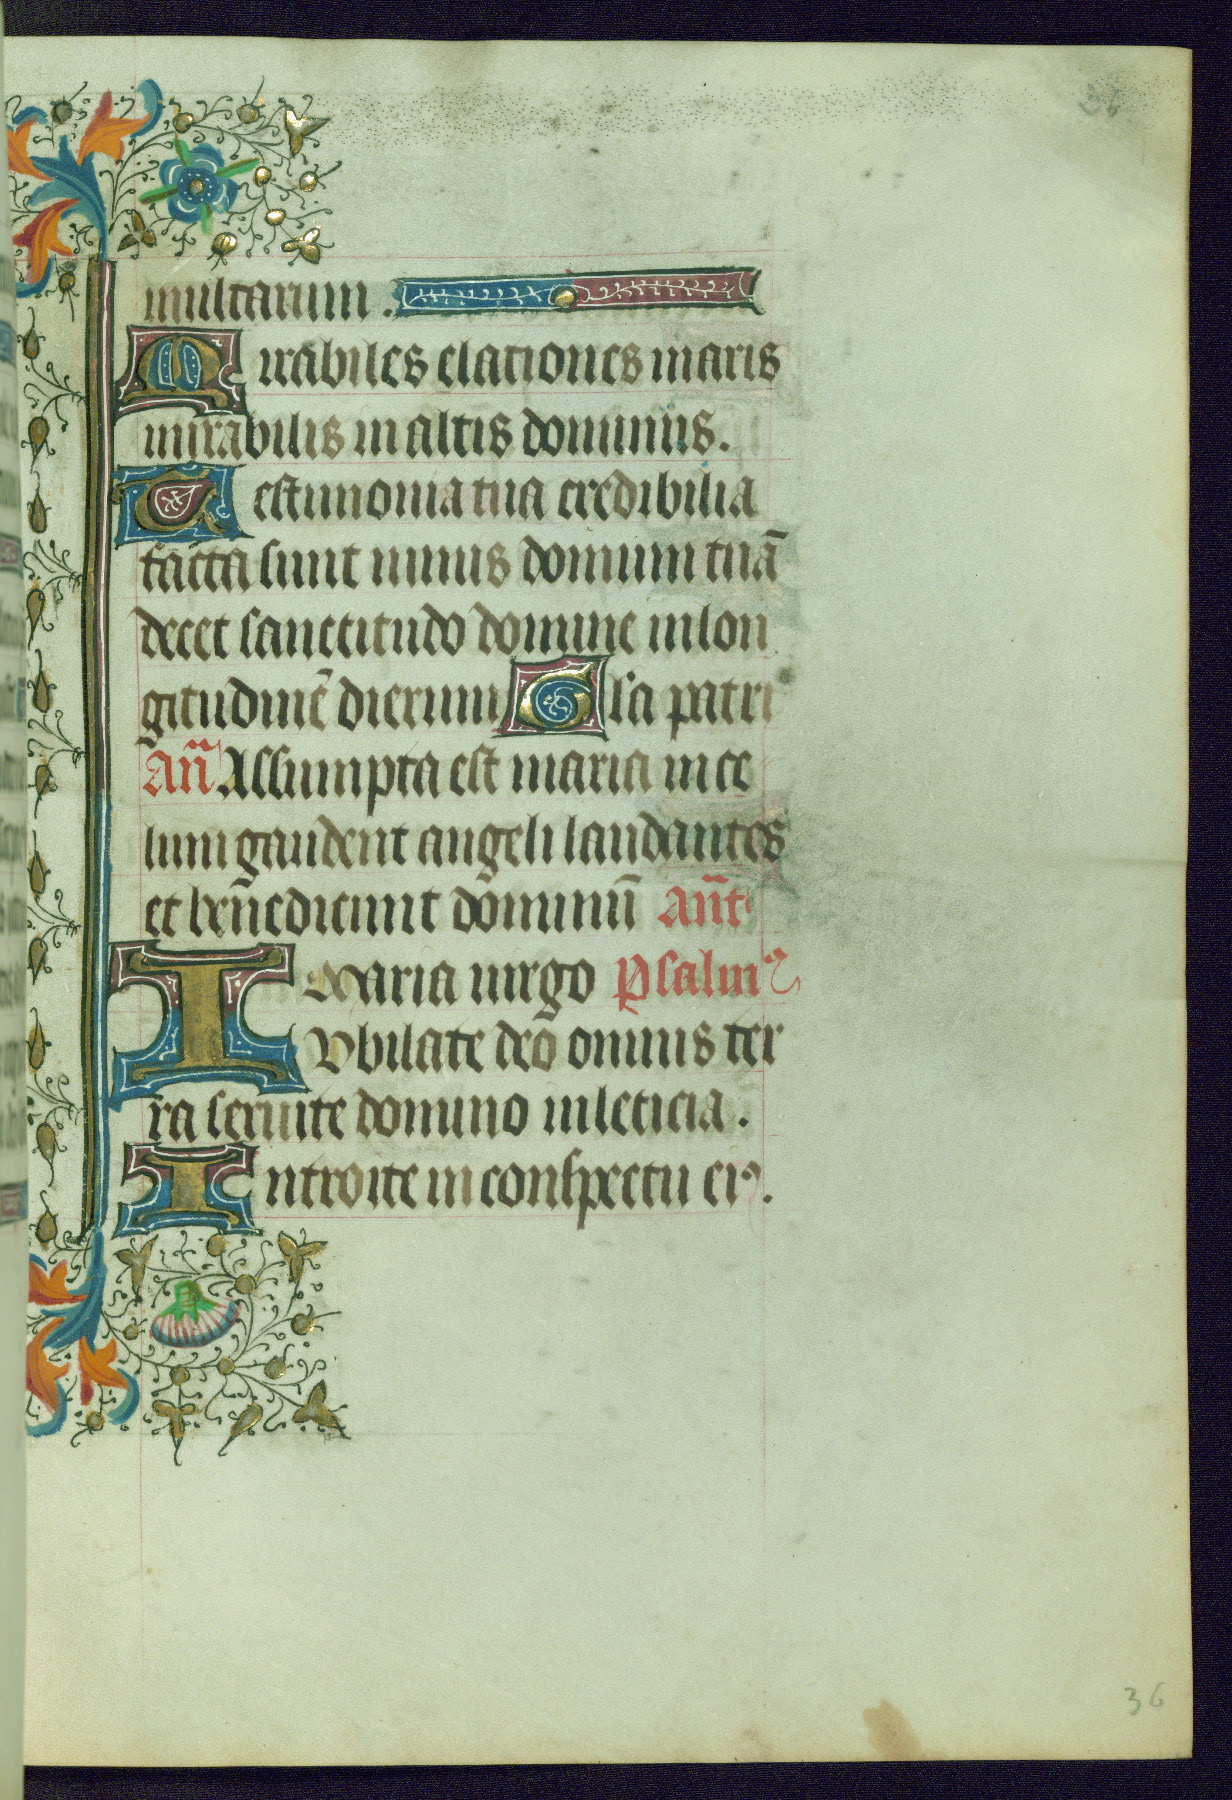 36
multarum .
Mirabiles elationes maris
mirabilis in altis dominus.
Testimonia tua credibilia
facta sunt nimis domum tuā
decet sanctitudo domine in lon
gitudinē dierum Gl'a patri
Añ Assumpta est maria in ce
lum gaudent angeli laudantes
et beñedicunt dominū Añt
Maria uirgo Psalmꝰ
IVbilate deo omnis ter
ra seruite domino in leticia .
Introite in conspectu eiꝰ .
36